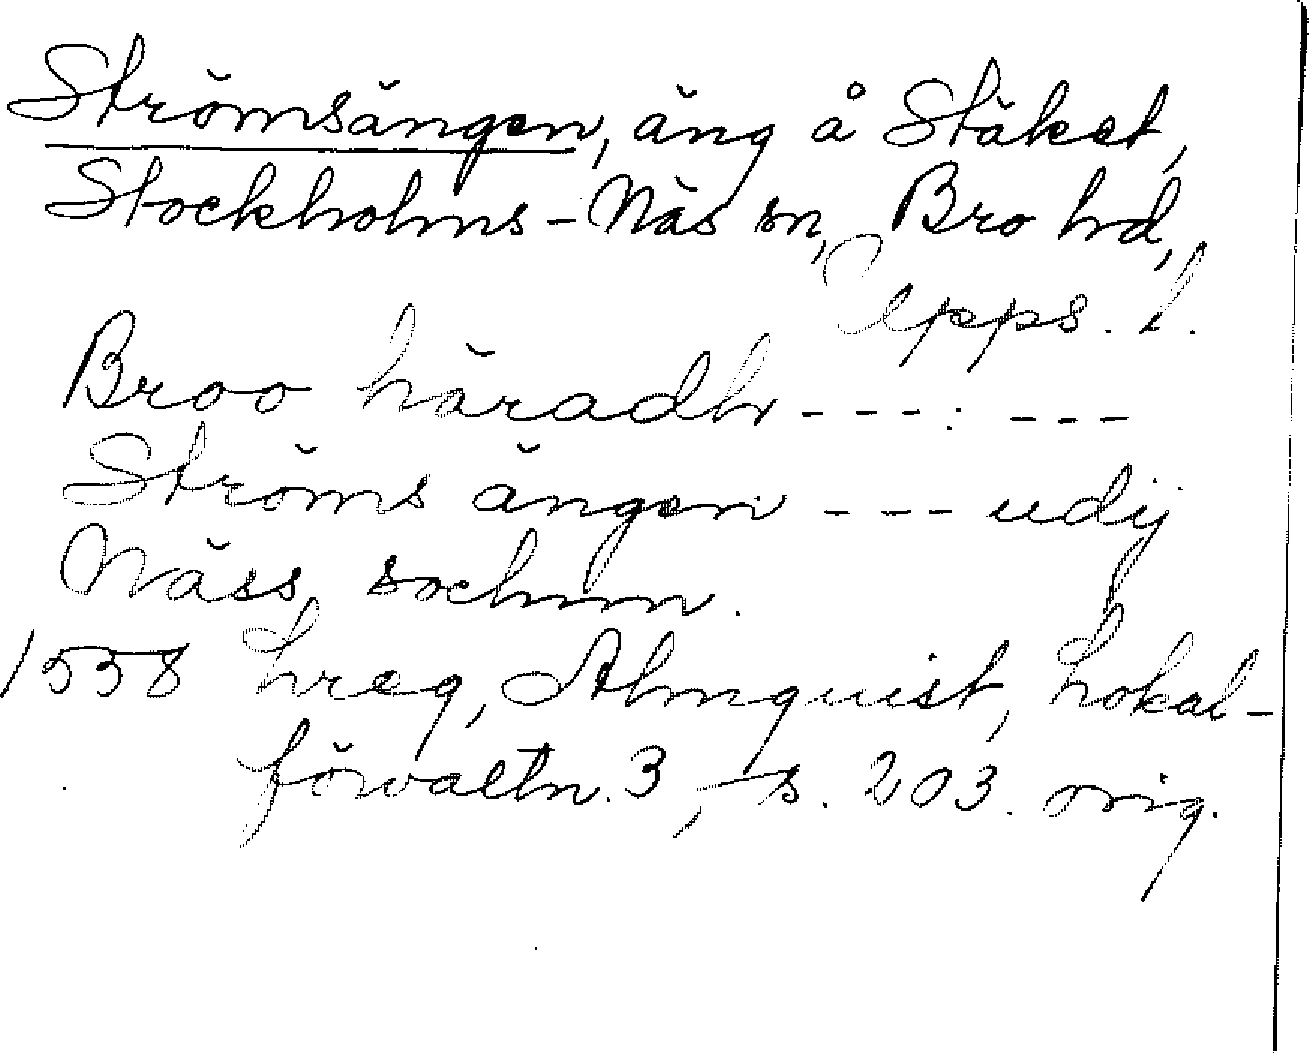 Strömsängen, äng å Stäket,
Stockholms-Näs sn, Bro hd,
Upps. l.
Broo häradh - - - : - - -
Ströms ängen - - - udij
Näss sochnn.
1538 Lreg, Almquist, Lokal-
förvaltn. 3, s. 203. orig.